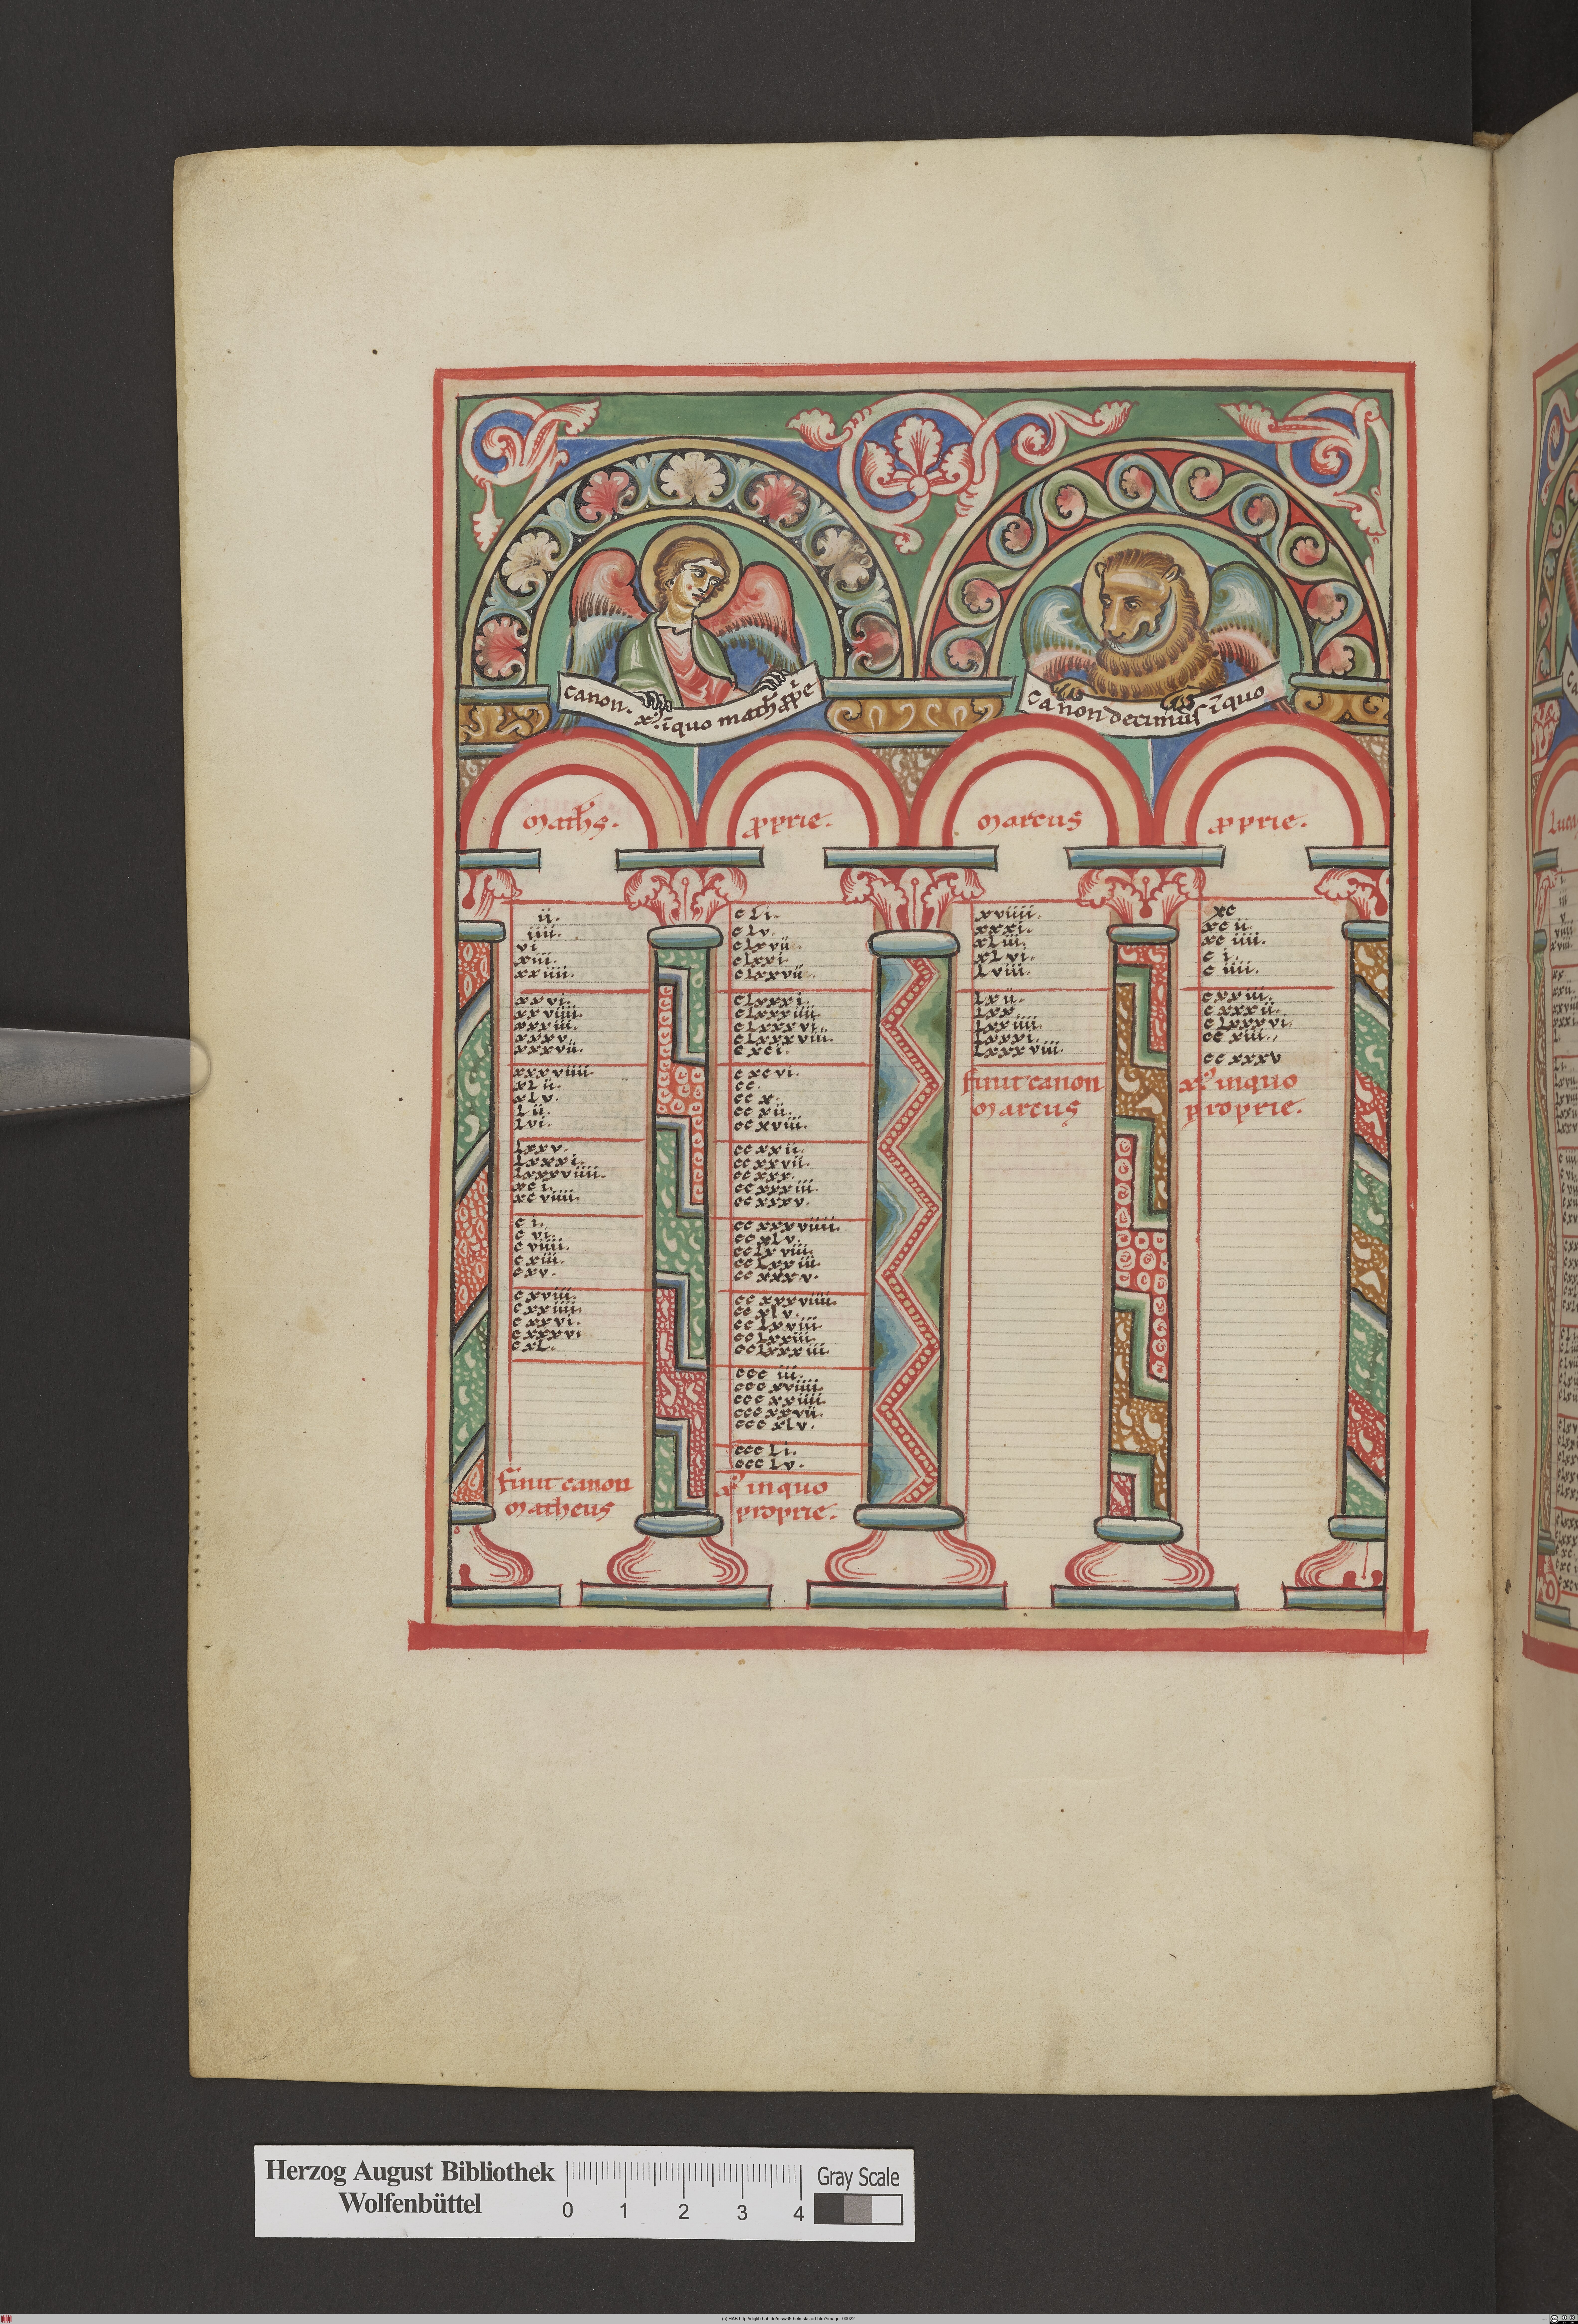 canon. x. īquo math ꝓpͥe
canon decimus īquo
Math̄s.
ꝓprie.
Marcus
ꝓprie.
ii.
iiii.
vi
xiii.
xxiiii.
xxvi.
xxviiii.
xxxiii.
xxxv.
xxxvii.
xxxviiii.
xlii.
xlv.
lii.
lvi.
lxxv.
lxxxi.
lxxxviiii.
xci.
xcviiii.
ci.
cvi.
cviiii.
cxiii.
cxv.
cxviii.
cxxiiii.
cxxvi.
cxxxvi
cxl.
finit canon
Matheus
cli.
clv.
clxvii.
clxxi.
clxxvii.
clxxxi.
clxxxiiii.
clxxxvi.
clxxxviii.
cxci.
cxcvi.
cc.
ccx.
ccxii.
ccxviii.
ccxxii.
ccxxvii.
ccxxx.
ccxxxiii.
ccxxxv.
ccxxxviiii.
ccxlv.
cclxviii.
cclxxiii.
ccxxxv.
ccxxxviiii.
ccxlv.
cclxviii.
cclxxiii.
cclxxxiii.
ccciii.
cccxviiii.
cccxxiiii.
cccxxvii.
cccxlv.
cccli.
ccclv.
inquo
proprie.
xviiii.
xxxi.
xliii.
xlvi.
lviii.
lxii.
lxx.
lxxiiii.
lxxxi.
lxxxviii.
finit canon
Marcus
xc
xcii.
xciiii.
ci.
ciiii.
cxxiii.
cxxxii.
clxxxvi.
ccxiii.
ccxxxv
inquo
proprie.
Herzog August Bibliothek
Wolfenbüttel
0 1 2 3 4
Gray Scale
(c) HAB http://diglib.hab.de/mss/65-helmst/start.htm?image=00022